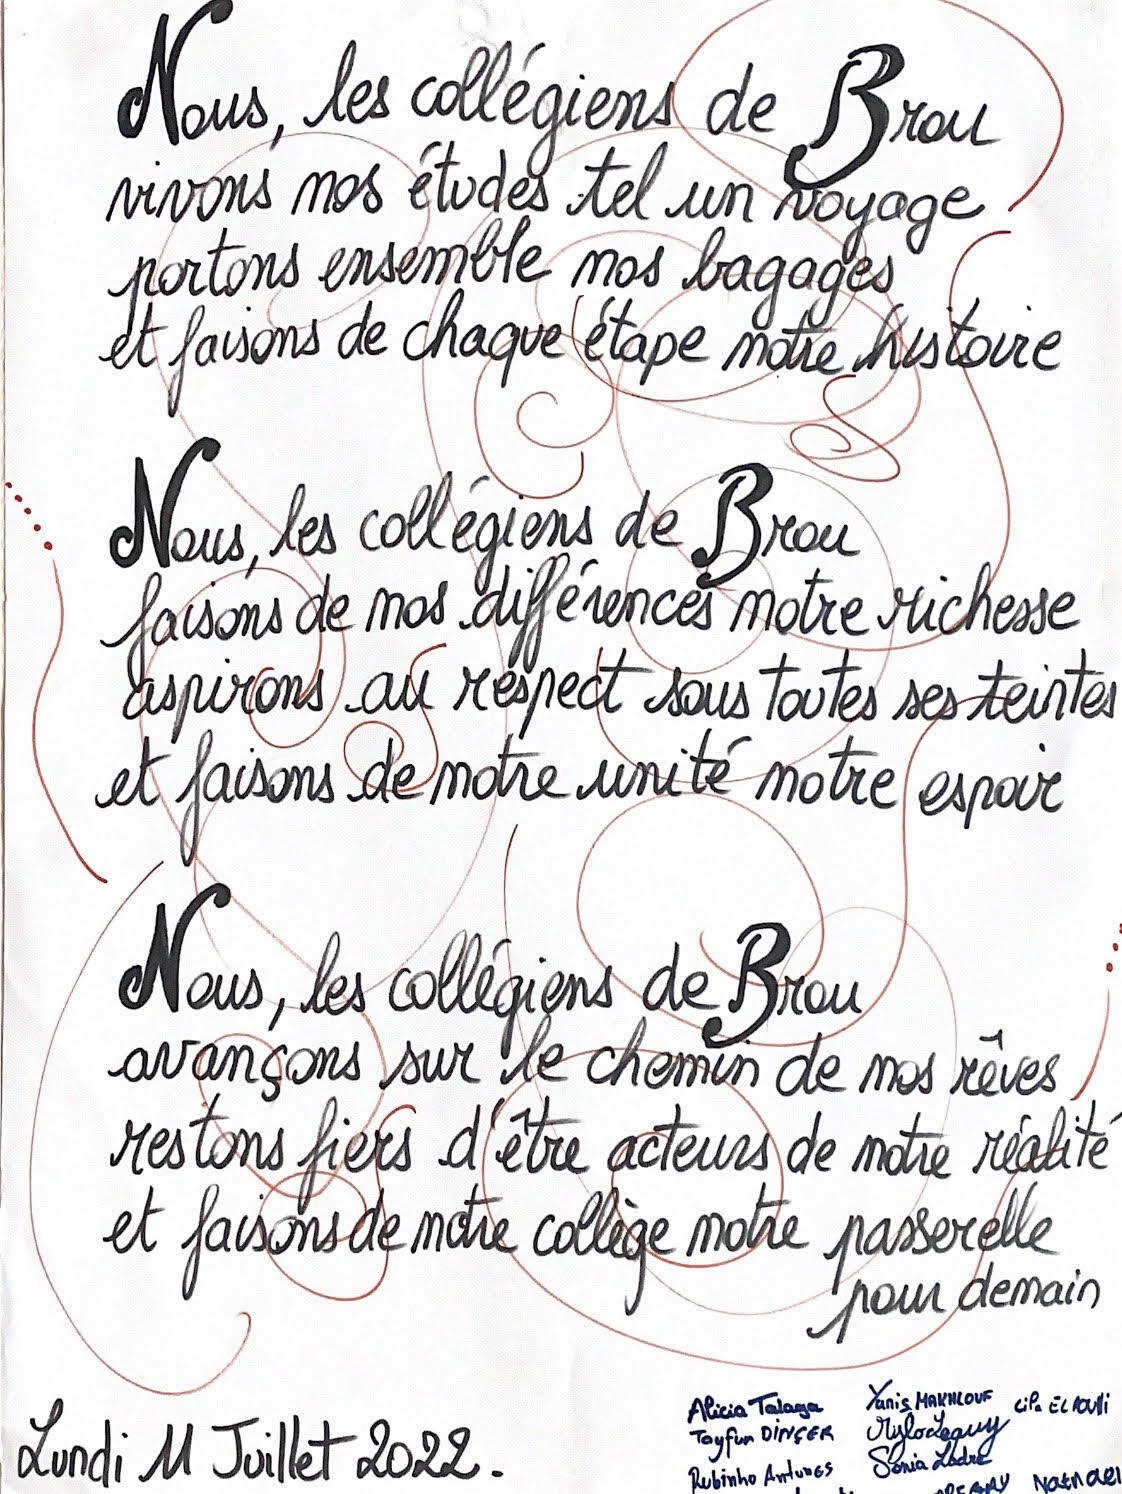 Nous, les collégiens de Brou
vivons nos études tel un voyage
portons ensemble nos bagages
et faisons de chaque étape notre histoire
Nous, les collégiens de Brou
faisons de nos différences notre richesse
aspirons au respect sous toutes ses teintes
et faisons de notre unité notre espoir
Nous, les collégiens de Brou
avançons sur le chemin de nos rêves
restons fiers d'être acteurs de notre réalité
et faisons de notre collège notre passerelle
pour demain
Lundi 11 Juillet 2022.
Alicia Talaga Yanis MAKHLOUF
Tayfun DİNÇER
Rubinho Antunes Sonia